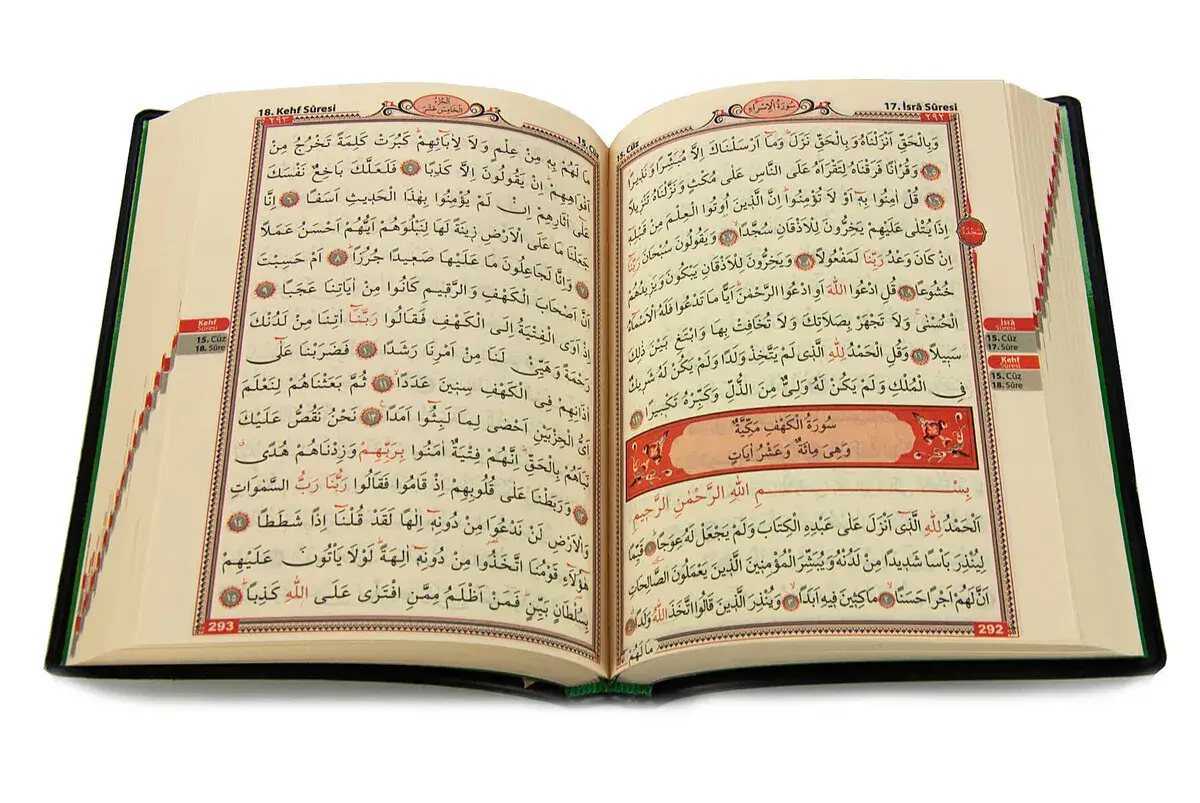 17. İsrâ Sûresi
سُورَةُ الْاِسْرَاءِ
15. Cüz
٢٩٢
وَبِالْحَقِّ اَنْزَلْنَاهُ وَبِالْحَقِّ نَزَلَ وَمَٓا اَرْسَلْنَاكَ اِلَّا مُبَشِّرًا وَنَذِيرًا
﴿١٠٥﴾ وَقُرْاٰنًا فَرَقْنَاهُ لِتَقْرَاَهُ عَلَى النَّاسِ عَلٰى مُكْثٍ وَنَزَّلْنَاهُ تَنْزِيلًا
﴿١٠٦﴾ قُلْ اٰمِنُوا بِهِٓ اَوْ لَا تُؤْمِنُوا اِنَّ الَّذِينَ اُوتُوا الْعِلْمَ مِنْ قَبْلِهِٓ
اِذَا يُتْلٰى عَلَيْهِمْ يَخِرُّونَ لِلْاَذْقَانِ سُجَّدًا ﴿١٠٧﴾ وَيَقُولُونَ سُبْحَانَ رَبِّنَٓا
اِنْ كَانَ وَعْدُ رَبِّنَا لَمَفْعُولًا ﴿١٠٨﴾ وَيَخِرُّونَ لِلْاَذْقَانِ يَبْكُونَ وَيَزِيدُهُمْ
خُشُوعًا ﴿١٠٩﴾ قُلِ ادْعُوا اللّٰهَ اَوِ ادْعُوا الرَّحْمٰنَ اَيًّا مَا تَدْعُوا فَلَهُ الْاَسْمَٓاءُ
الْحُسْنٰى وَلَا تَجْهَرْ بِصَلَاتِكَ وَلَا تُخَافِتْ بِهَا وَابْتَغِ بَيْنَ ذٰلِكَ
سَبِيلًا ﴿١١٠﴾ وَقُلِ الْحَمْدُ لِلّٰهِ الَّذِي لَمْ يَتَّخِذْ وَلَدًا وَلَمْ يَكُنْ لَهُ شَرِيكٌ
فِي الْمُلْكِ وَلَمْ يَكُنْ لَهُ وَلِيٌّ مِنَ الذُّلِّ وَكَبِّرْهُ تَكْبِيرًا ﴿١١١﴾
سُورَةُ الْكَهْفِ مَكِّيَّةٌ
وَهِىَ مِائَةٌ وَعَشْرُ اٰيَاتٍ
بِسْمِ اللّٰهِ الرَّحْمٰنِ الرَّحِيمِ
اَلْحَمْدُ لِلّٰهِ الَّذِٓي اَنْزَلَ عَلٰى عَبْدِهِ الْكِتَابَ وَلَمْ يَجْعَلْ لَهُ عِوَجًا ﴿١﴾ قَيِّمًا
لِيُنْذِرَ بَاْسًا شَدِيدًا مِنْ لَدُنْهُ وَيُبَشِّرَ الْمُؤْمِنِينَ الَّذِينَ يَعْمَلُونَ الصَّالِحَاتِ
اَنَّ لَهُمْ اَجْرًا حَسَنًا ﴿٢﴾ مَاكِثِينَ فِيهِ اَبَدًا ﴿٣﴾ وَيُنْذِرَ الَّذِينَ قَالُوا اتَّخَذَ اللّٰهُ وَلَدًا ﴿٤﴾
مَا لَهُمْ
292
سَجْدَة
İsrâ
Sûresi
15. Cüz
17. Sûre
Kehf
Sûresi
15. Cüz
18. Sûre
18. Kehf Sûresi
اَلْجُزْءُ الْخَامِسَ عَشَرَ
٢٩٣
مَا لَهُمْ بِهِ مِنْ عِلْمٍ وَلَا لِاٰبَٓائِهِمْ كَبُرَتْ كَلِمَةً تَخْرُجُ مِنْ
اَفْوَاهِهِمْ اِنْ يَقُولُونَ اِلَّا كَذِبًا ﴿٥﴾ فَلَعَلَّكَ بَاخِعٌ نَفْسَكَ
عَلٰٓى اٰثَارِهِمْ اِنْ لَمْ يُؤْمِنُوا بِهٰذَا الْحَدِيثِ اَسَفًا ﴿٦﴾ اِنَّا
جَعَلْنَا مَا عَلَى الْاَرْضِ زِينَةً لَهَا لِنَبْلُوَهُمْ اَيُّهُمْ اَحْسَنُ عَمَلًا
﴿٧﴾ وَاِنَّا لَجَاعِلُونَ مَا عَلَيْهَا صَعِيدًا جُرُزًا ﴿٨﴾ اَمْ حَسِبْتَ
اَنَّ اَصْحَابَ الْكَهْفِ وَالرَّقِيمِ كَانُوا مِنْ اٰيَاتِنَا عَجَبًا ﴿٩﴾
اِذْ اَوَى الْفِتْيَةُ اِلَى الْكَهْفِ فَقَالُوا رَبَّنَٓا اٰتِنَا مِنْ لَدُنْكَ
رَحْمَةً وَهَيِّئْ لَنَا مِنْ اَمْرِنَا رَشَدًا ﴿١٠﴾ فَضَرَبْنَا عَلٰٓى
اٰذَانِهِمْ فِي الْكَهْفِ سِنِينَ عَدَدًا ﴿١١﴾ ثُمَّ بَعَثْنَاهُمْ لِنَعْلَمَ
اَيُّ الْحِزْبَيْنِ اَحْصٰى لِمَا لَبِثُٓوا اَمَدًا ﴿١٢﴾ نَحْنُ نَقُصُّ عَلَيْكَ
نَبَاَهُمْ بِالْحَقِّ اِنَّهُمْ فِتْيَةٌ اٰمَنُوا بِرَبِّهِمْ وَزِدْنَاهُمْ هُدًى
﴿١٣﴾ وَرَبَطْنَا عَلٰى قُلُوبِهِمْ اِذْ قَامُوا فَقَالُوا رَبُّنَا رَبُّ السَّمٰوَاتِ
وَالْاَرْضِ لَنْ نَدْعُوَا مِنْ دُونِهِٓ اِلٰهًا لَقَدْ قُلْنَٓا اِذًا شَطَطًا ﴿١٤﴾
هٰٓؤُلَٓاءِ قَوْمُنَا اتَّخَذُوا مِنْ دُونِهِٓ اٰلِهَةً لَوْلَا يَاْتُونَ عَلَيْهِمْ
بِسُلْطَانٍ بَيِّنٍ فَمَنْ اَظْلَمُ مِمَّنِ افْتَرٰى عَلَى اللّٰهِ كَذِبًا ﴿١٥﴾
293
Kehf
Sûresi
15. Cüz
18. Sûre